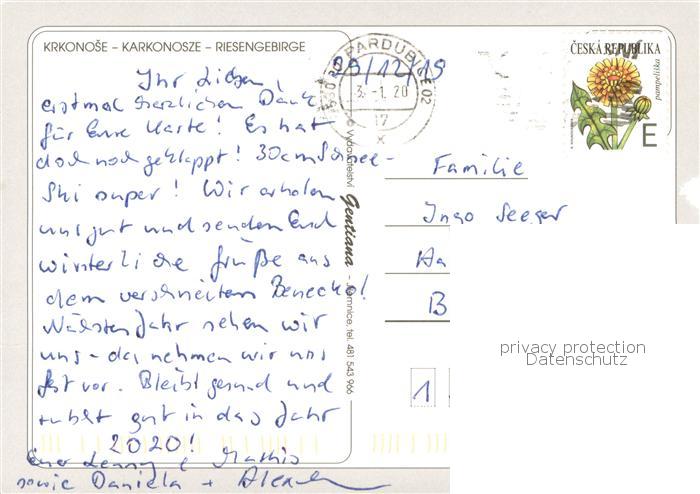 KRKONOŠE – KARKONOSZE – RIESENGEBIRGE
29/12/19
Ihr Lieben,
erstmal herzlichen Dank
für Eure Karte! Es hat
doch noch geklappt! 30cm Schnee -
Ski super! Wir erholen
uns gut und senden Euch
winterliche Grüße aus
dem verschneiten Benecko!
Nächsten Jahr sehen wir
uns - das nehmen wir uns
fest vor. Bleibt gesund und
rutscht gut in das Jahr
2020!
Euer Lenny & Mathis
sowie Daniela +
Vydavatelství Gentiana - Jilemnice, tel. 481 543 966
PARDUBICE 02
530 20
3.-1.20
17
ČESKÁ REPUBLIKA
pampeliška
E
Familie
Ingo Seeger
Ha
B
1
privacy protection
Datenschutz